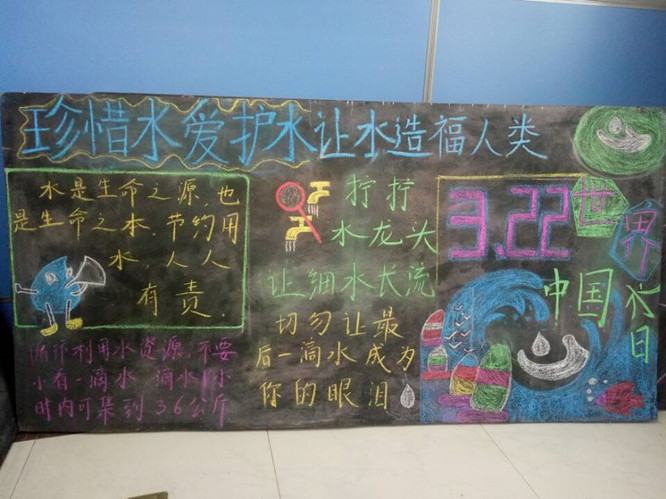 珍惜水爱护水让水造福人类
水是生命之源,也
是生命之本,节约用
水,人人
有责.
循环利用水资源,不要
小看一滴水 滴水1小
时内可集到 3.6公斤
拧拧
水龙头
让细水长流
切勿让最
后一滴水成为
你的眼泪
3.22世界
中国水日